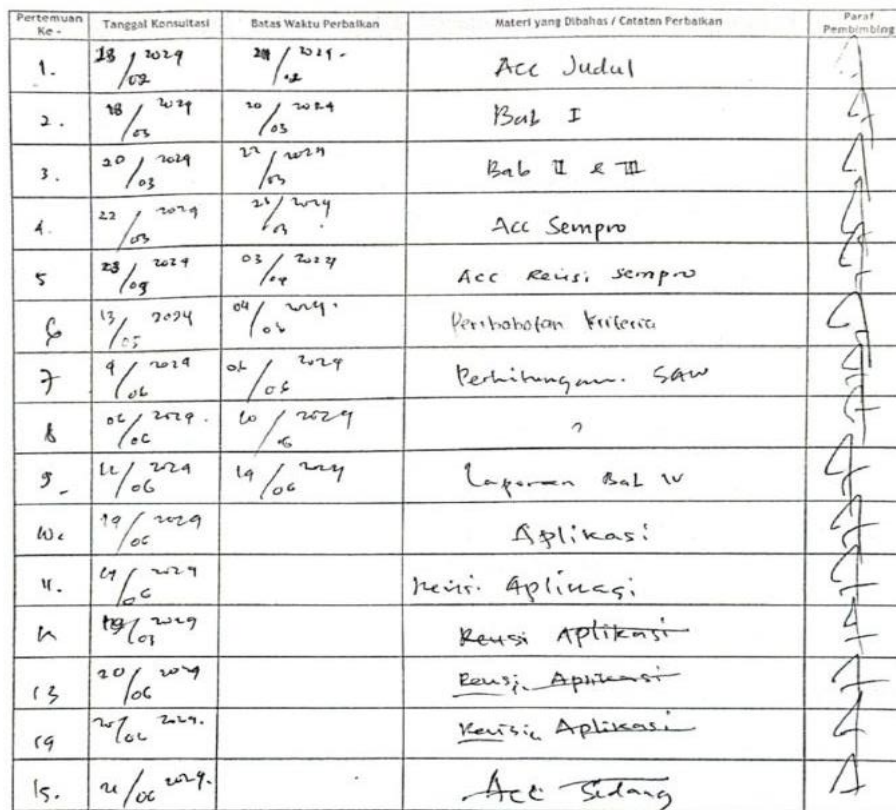 Pertemuan Ke - Tanggal Konsultasi Batas Waktu Perbaikan Materi yang Dibahas / Catatan Perbaikan Paraf Pembimbing
1. /02 2029 Acc Judul
2. 18/03 2029 20/03 2024 Bab I
3. 20/03 2029 22/03 2024 Bab II & III
4. 22/03 2029 Acc Sempro
5 2029 03/04 2024 Acc Revisi Sempro
6 13/05 2024 04/06 Pembobotan Kriteria
7 4/06 2029 06/06 2029 Perhitungan. SAW
8 06/06 2029. 10/06 2029 "
9 /06 2029 19/06 2024 Laporan Bab IV
10. 19/06 2029 Aplikasi
11. 19/06 2029 Revisi Aplikasi
12 2029 Revisi Aplikasi
13 20/06 2024 Revisi Aplikasi
14 20/06 2024. Revisi Aplikasi
15. 21/06 2024. Acc Sidang